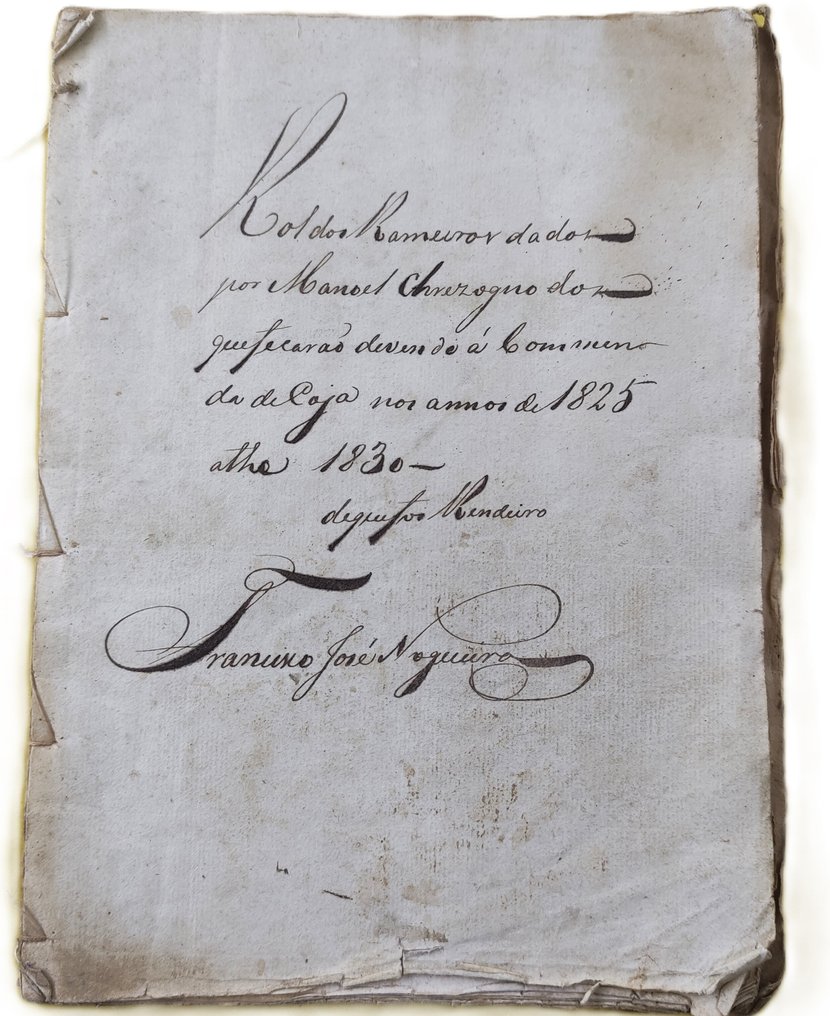 Rol dos Rameiros dados
por Manoel Chrezogno dos
que ficarão devendo á Commen
da de Coja nos annos de 1825
athe 1830
de que foi Rendeiro
Francisco José Nogueira